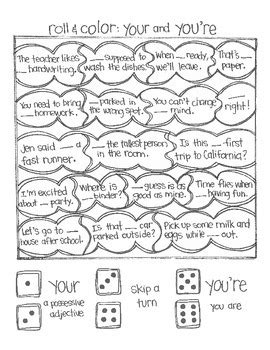 roll & color: your and you're
The teacher likes __ handwriting.
__ supposed to wash the dishes.
When __ ready, we'll leave.
That's __ paper.
You need to bring __ homework.
__ parked in the wrong spot.
You can't change __ mind.
__ right!
Jen said __ a fast runner.
__ the tallest person in the room.
Is this __ first trip to California?
I'm excited about __ party.
Where is __ binder?
__ guess is as good as mine.
Time flies when __ having fun.
Let's go to __ house after school.
Is that __ car parked outside?
Pick up some milk and eggs while __ out.
your
a possessive
adjective
skip a
turn
you're
you are